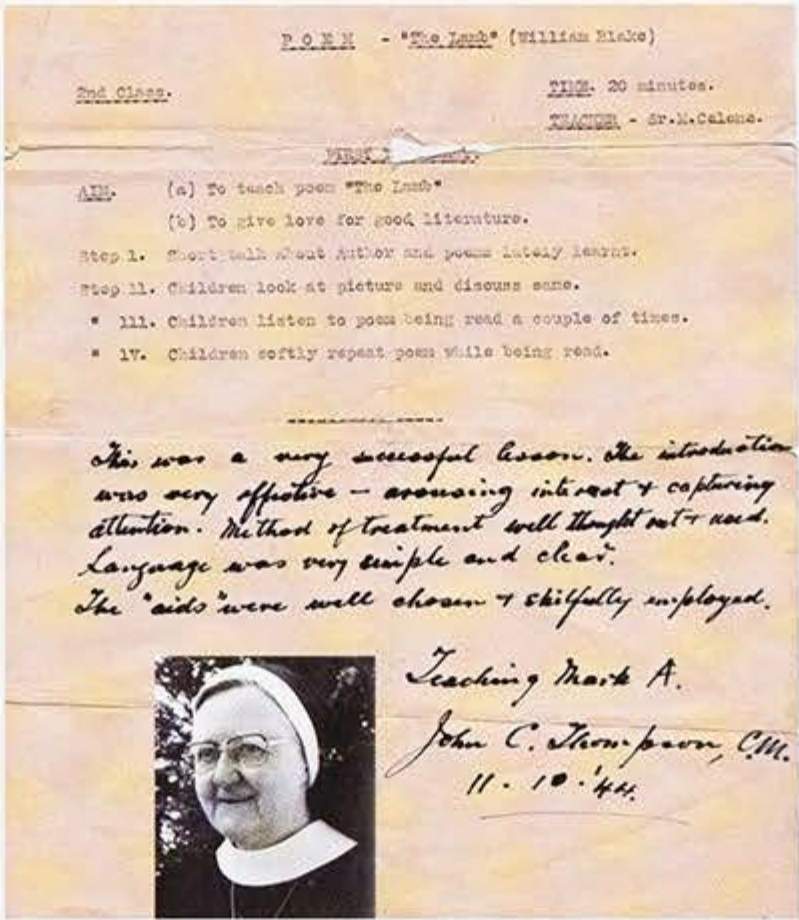 P O E M - "The Lamb" (William Blake)
2nd Class.
TIME. 20 minutes.
TEACHER - Sr.M.Celene.
FIRST
AIM. (a) To teach poem "The Lamb"
(b) To give love for good literature.
Step 1. Short talk about Author and poems lately learnt.
Step 11. Children look at picture and discuss same.
" 111. Children listen to poem being read a couple of times.
" 1V. Children softly repeat poem while being read.
This was a very successful lesson. The introduction
was very effective – arousing interest + capturing
attention. Method of treatment well thought out + used.
Language was very simple and clear.
The "aids" were well chosen + skilfully employed.
Teaching Mark A.
John C. Thompson, C.M.
11 - 10 - '44.